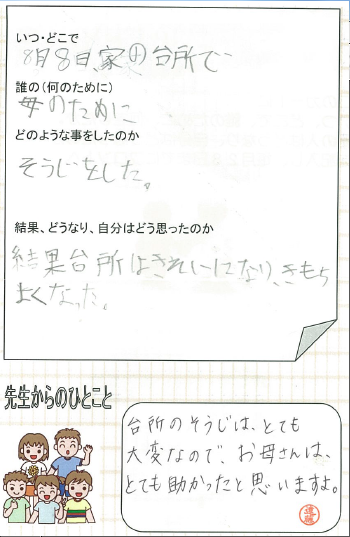 いつ・どこで
8月8日、家の台所で
誰の（何のために）
母のために
どのような事をしたのか
そうじをした。
結果、どうなり、自分はどう思ったのか
結果台所はきれいになり、きもち
よくなった。
先生からのひとこと
台所のそうじは、とても
大変なので、お母さんは、
とても助かったと思いますよ。